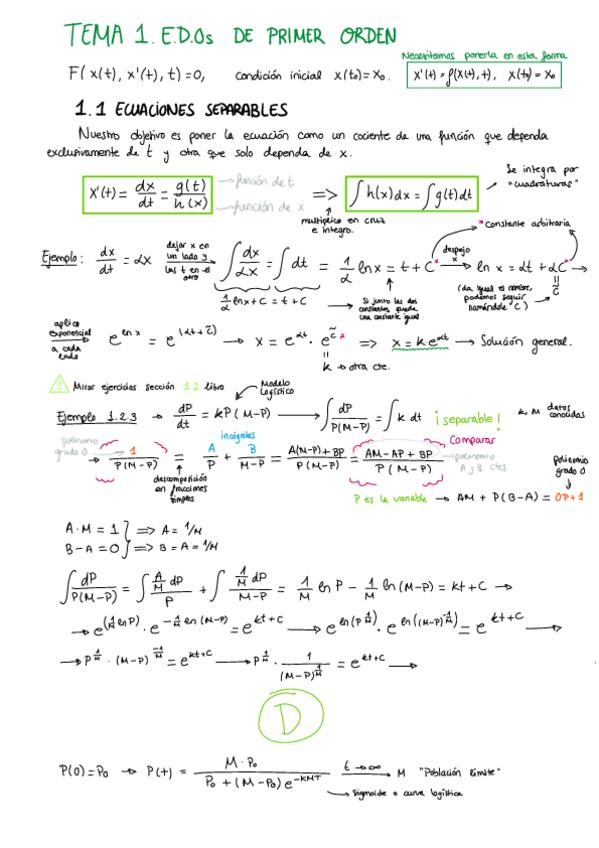 TEMA 1. E.D.Os DE PRIMER ORDEN
Necesitamos ponerla en esta forma
F(x(t), x'(t), t) = 0, condición inicial x(t₀) = x₀. x'(t) = f(x(t), t), x(t₀) = x₀
1.1 ECUACIONES SEPARABLES
Nuestro objetivo es poner la ecuación como un cociente de una función que dependa
exclusivamente de t y otra que solo dependa de x.
Se integra por "cuadraturas"
x'(t) = dx/dt = g(t)/h(x) → función de t → función de x => ∫h(x)dx = ∫g(t)dt
multiplico en cruz e integro.
* Constante arbitraria
Ejemplo: dx/dt = αx dejar x en un lado y las t en el otro → ∫dx/αx = ∫dt = 1/α ln x = t + C* despejo x → ln x = αt + αC →
1/α ln x + C = t + C
Si junto las dos constantes queda una constante igual
(da igual el nombre, podemos seguir llamándole C) = C̃
aplico exponencial a cada lado → e^(ln x) = e^(αt + C̃) → x = e^(αt) · e^(C̃)* => x = k e^(αt) → Solución general.
k → otra cte.
Mirar ejercicios sección 1.2 libro
Modelo Logístico
Ejemplo 1.2.3 → dP/dt = kP(M-P) → ∫dP/P(M-P) = ∫k dt ¡separable! k, M datos conocidos
polinomio grado 0 incógnitas Comparas
→ 1/P(M-P) = A/P + B/M-P = A(M-P)+BP/P(M-P) = AM-AP+BP/P(M-P) → polinomio A y B ctes
polinomio grado 0
descomposición en fracciones simples
P es la variable → AM + P(B-A) = 0P+1
A·M = 1 } => A = 1/M
B-A = 0 } => B = A = 1/M
∫dP/P(M-P) = ∫(A/M dP)/P + ∫(1/M dP)/M-P = 1/M ln P - 1/M ln(M-P) = kt + C →
→ e^(1/M ln P) · e^(-1/M ln(M-P)) = e^(kt+C) → e^(ln(P^(1/M))) · e^(ln((M-P)^(-1/M))) = e^(kt+C) →
→ P^(1/M) · (M-P)^(-1/M) = e^(kt+C) → P^(1/M) · 1/(M-P)^(1/M) = e^(kt+C) →
D
P(0) = P₀ → P(t) = M·P₀/P₀+(M-P₀)e^(-KMT) t→∞ → M "Población límite"
→ Sigmoide o curva logística